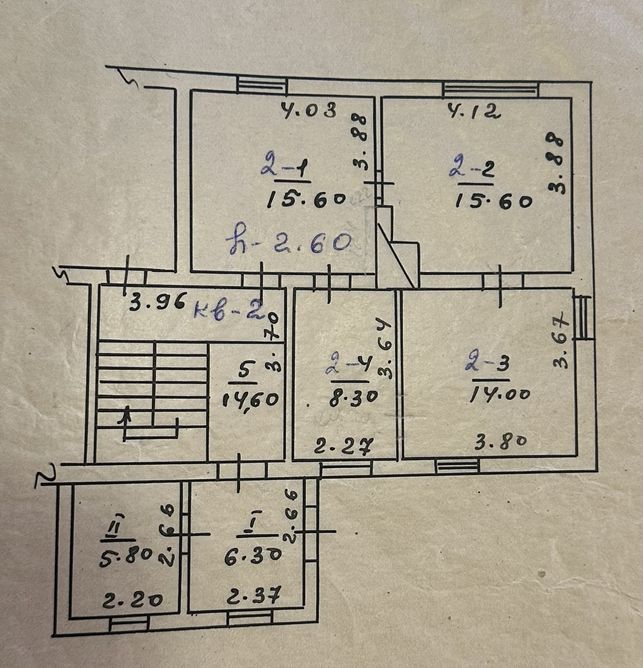 4.03
3.88
2-1
15.60
h-2.60
4.12
3.88
2-2
15.60
3.96
кв-2
3.70
5
14,60
2-4
8.30
3.64
2.27
2-3
14.00
3.67
3.80
II
5.80
2.66
2.20
I
6.30
2.66
2.37